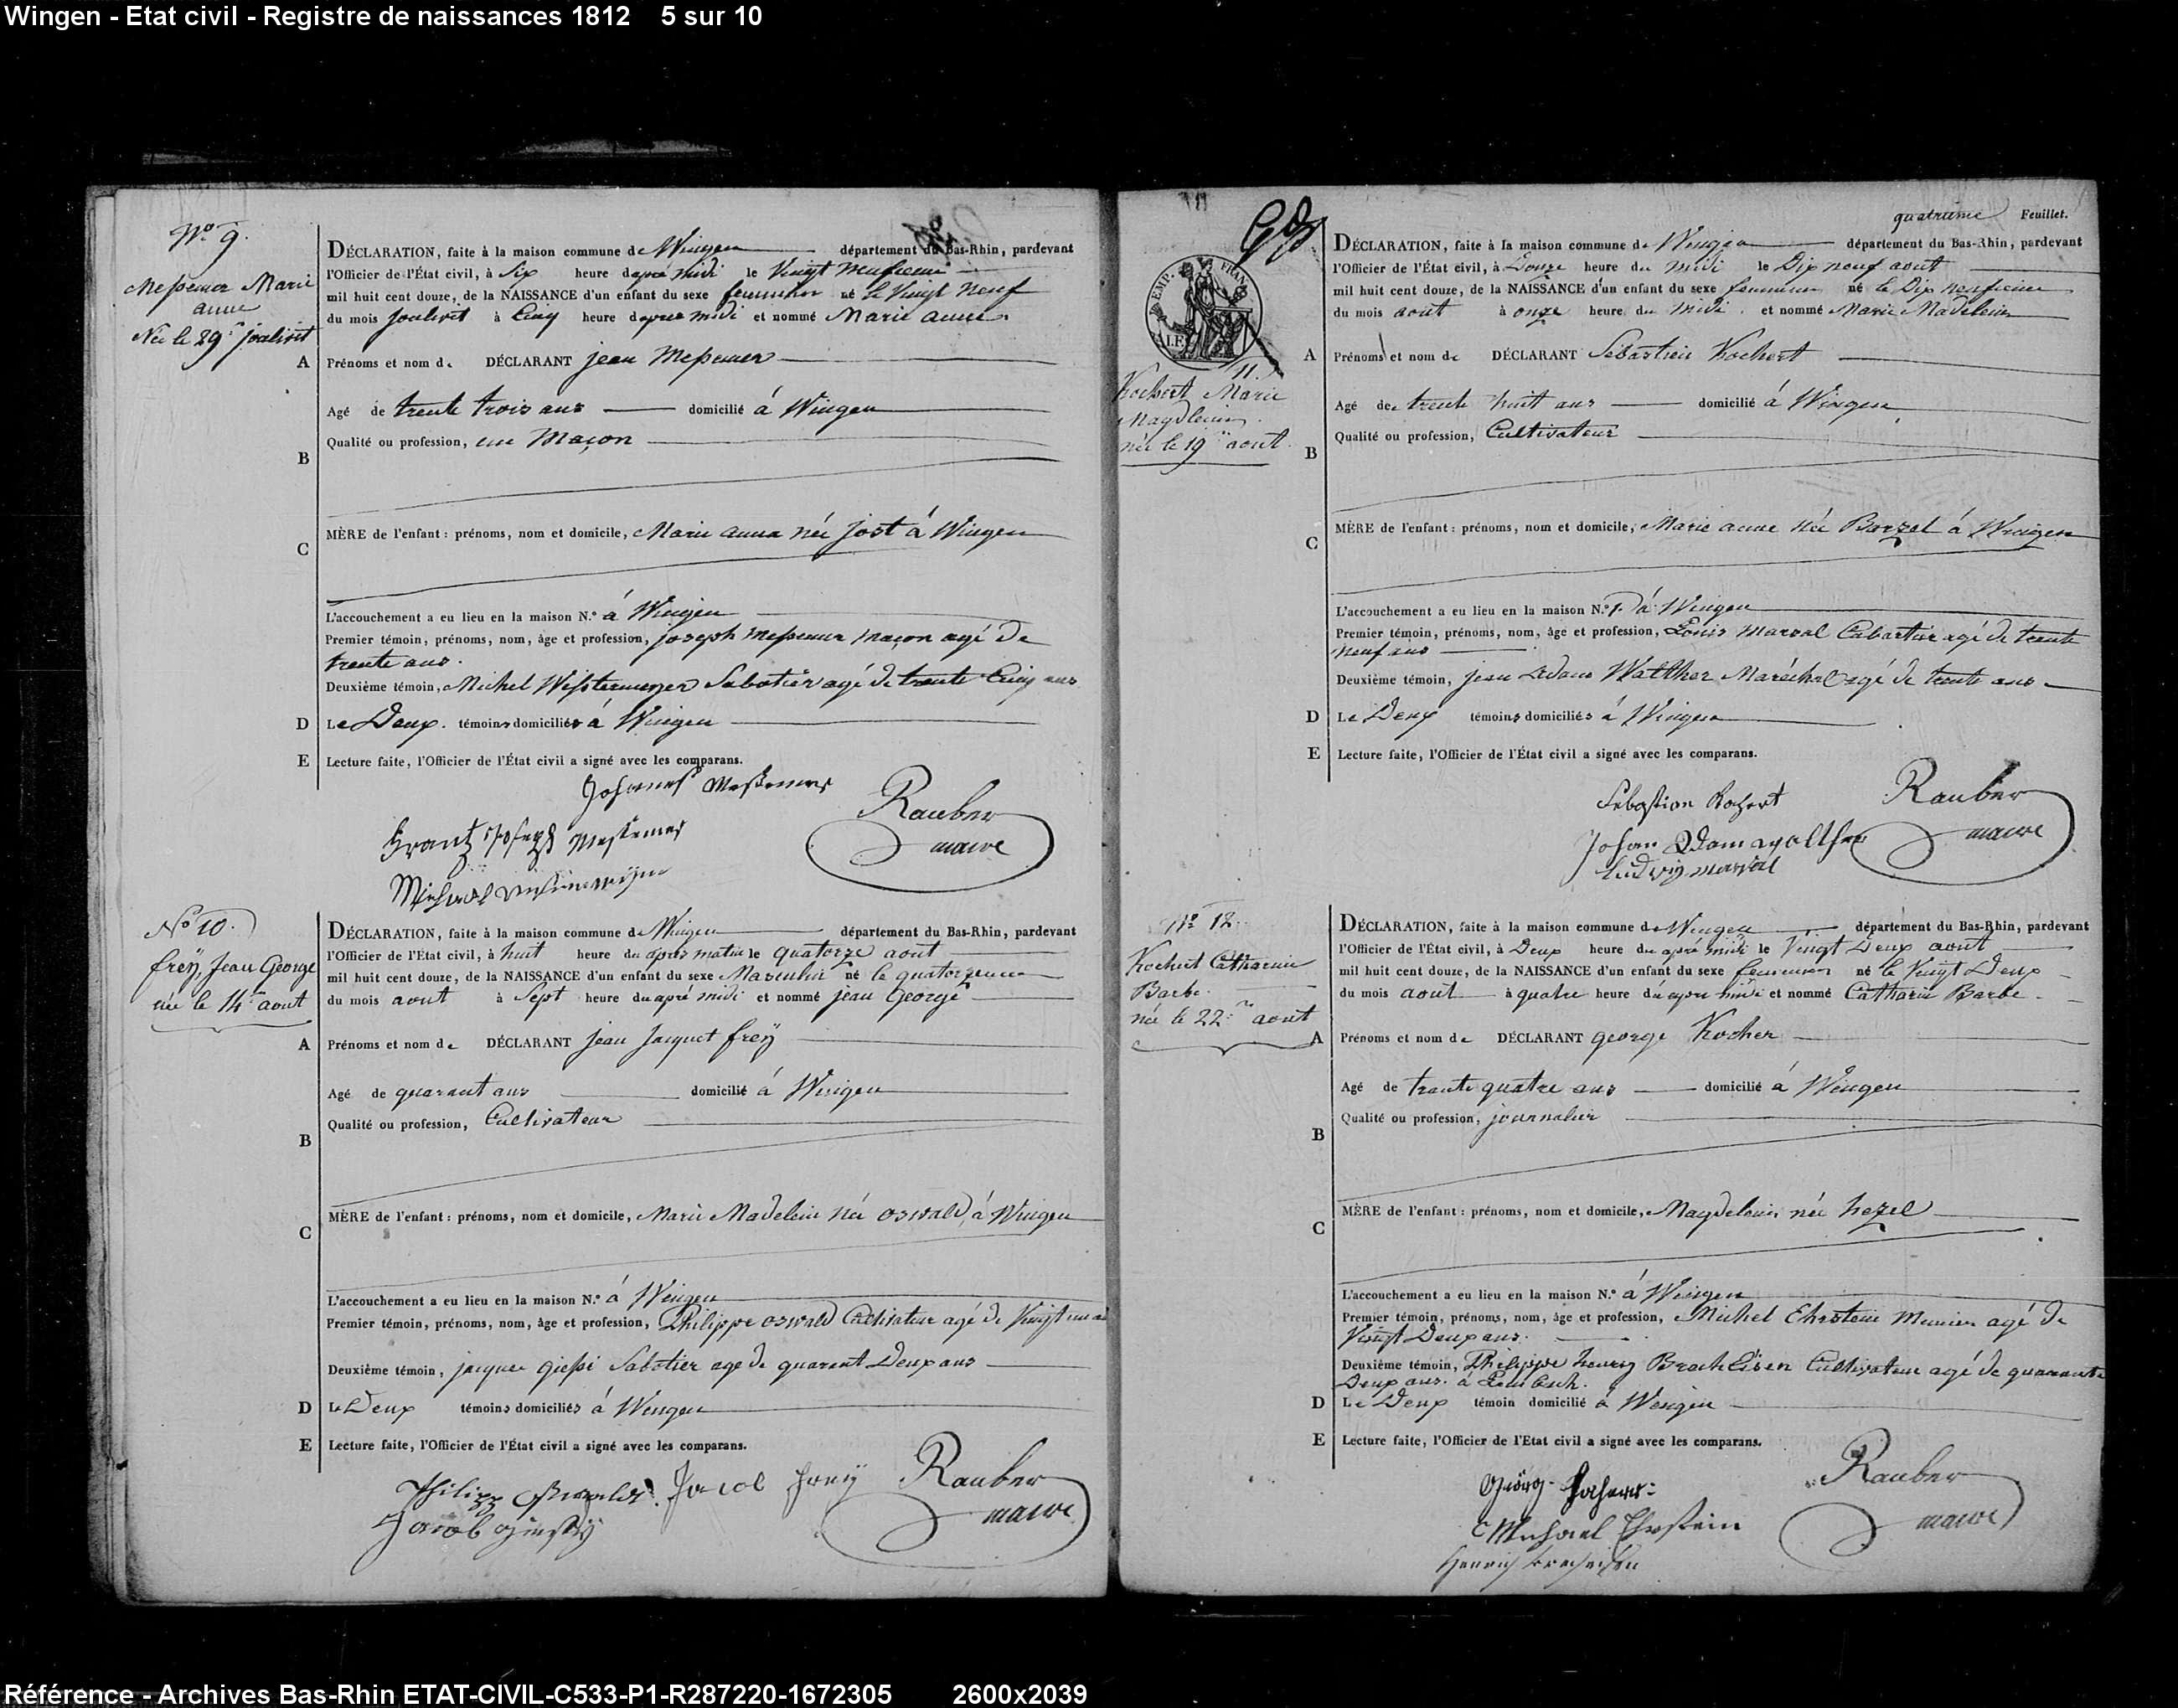 Wingen - Etat civil - Registre de naissances 1812 5 sur 10
N.º 9.
Messemer Marie
anne
Née le 29.e joullivit
DÉCLARATION, faite à la maison commune de Wingen département du Bas-Rhin, pardevant
l'Officier de l'État civil, à Six heure d apre midi le Vingt neufieme
mil huit cent douze, de la NAISSANCE d'un enfant du sexe feminin né le Vingt neuf
du mois à Cinq heure d apres midi et nommé Marie anne.
A Prénoms et nom d. DÉCLARANT jean Messemer
Agé de trente trois ans domicilié à Wingen
Qualité ou profession, un Maçon
B
C MÈRE de l'enfant : prénoms, nom et domicile, Marie anna née jost à Wingen
L'accouchement a eu lieu en la maison N.º à Wingen
Premier témoin, prénoms, nom, âge et profession, joseph Messemer maçon agé de
trente ans.
Deuxième témoin, Michel Sabotier agé de trente Cinq ans
D Le Deux. témoins domiciliés à Wingen
E Lecture faite, l'Officier de l'État civil a signé avec les comparans.
Johannes Messemer
Rauber
maire
Frantz Joseph Messemer
Michael
N.º 10.
freÿ, Jean George
née le 14 aout
DÉCLARATION, faite à la maison commune de Wingen département du Bas-Rhin, pardevant
l'Officier de l'État civil, à huit heure du apres matin le quatorze aout
mil huit cent douze, de la NAISSANCE d'un enfant du sexe Masculin né le quatorzieme
du mois aout à Sept heure du apré midi et nommé jean George
A Prénoms et nom de DÉCLARANT jean Jacquet freÿ
Agé de quarant ans domicilié à Wingen
Qualité ou profession, Cultivateur
B
C MÈRE de l'enfant : prénoms, nom et domicile, Marie Madelein née oswald, à Wingen
L'accouchement a eu lieu en la maison N.º à Wingen
Premier témoin, prénoms, nom, âge et profession, Philippe oswald Cultivateur agé de Vingt
Deuxième témoin, jacque giessi Sabotier age de quarant Deux ans
D Le Deux témoins domiciliés à Wingen
E Lecture faite, l'Officier de l'État civil a signé avec les comparans.
Philipp Osswaldt. Jacob freÿ Rauber
maire
Jacob
quatrieme Feuillet.
EMP. FRAN
11.
Kochert Marie
Magdlein
née le 19 aout.
DÉCLARATION, faite à la maison commune de Wingen département du Bas-Rhin, pardevant
l'Officier de l'État civil, à Douze heure du midi le Dix neuf aout
mil huit cent douze, de la NAISSANCE d'un enfant du sexe feminin né le Dix neuficime
du mois aout à onze heure du midi. et nommé Marie Madelein
A Prénoms et nom de DÉCLARANT Sebastien Kochert
Agé de trente huit ans domicilié à Wingen
Qualité ou profession, Cultivateur
B
C MÈRE de l'enfant : prénoms, nom et domicile, Marie anne née à Wingen
L'accouchement a eu lieu en la maison N.º à Wingen
Premier témoin, prénoms, nom, âge et profession, Louis Marzal Cabartier agé de trente
neuf ans
Deuxième témoin, jean Adam Walther Maréchal agé de trente ans
D Le Deux témoins domiciliés à Wingen
E Lecture faite, l'Officier de l'État civil a signé avec les comparans.
Sebastian Kochert
Rauber
maire
Johan Adam Walther
Ludwig
N.º 12.
Kochert Catharin
Barbe.
née le 22 aout
DÉCLARATION, faite à la maison commune de Wingen département du Bas-Rhin, pardevant
l'Officier de l'État civil, à Deux heure du apré midi le Vingt Deux aout
mil huit cent douze, de la NAISSANCE d'un enfant du sexe feminin né le Vingt Deux
du mois aout à quatre heure du apre midi et nommé Catharin Barbe
A Prénoms et nom de DÉCLARANT george Kocher
Agé de trante quatre ans domicilié à Wingen
Qualité ou profession, journalier
B
C MÈRE de l'enfant : prénoms, nom et domicile, Magdelein née hezel
L'accouchement a eu lieu en la maison N.º à Wingen
Premier témoin, prénoms, nom, âge et profession, Michel Ehrstein agé de
Vingt Deux ans.
Deuxième témoin, Philippe henry Cultivateur agé de quarante
Deux ans. à Lembach.
D Le Deux témoin domicilié à Wengin
E Lecture faite, l'Officier de l'Etat civil a signé avec les comparans.
Georg
Rauber
maire
Michael Ehrstein
Henrich
Référence - Archives Bas-Rhin ETAT-CIVIL-C533-P1-R287220-1672305 2600x2039